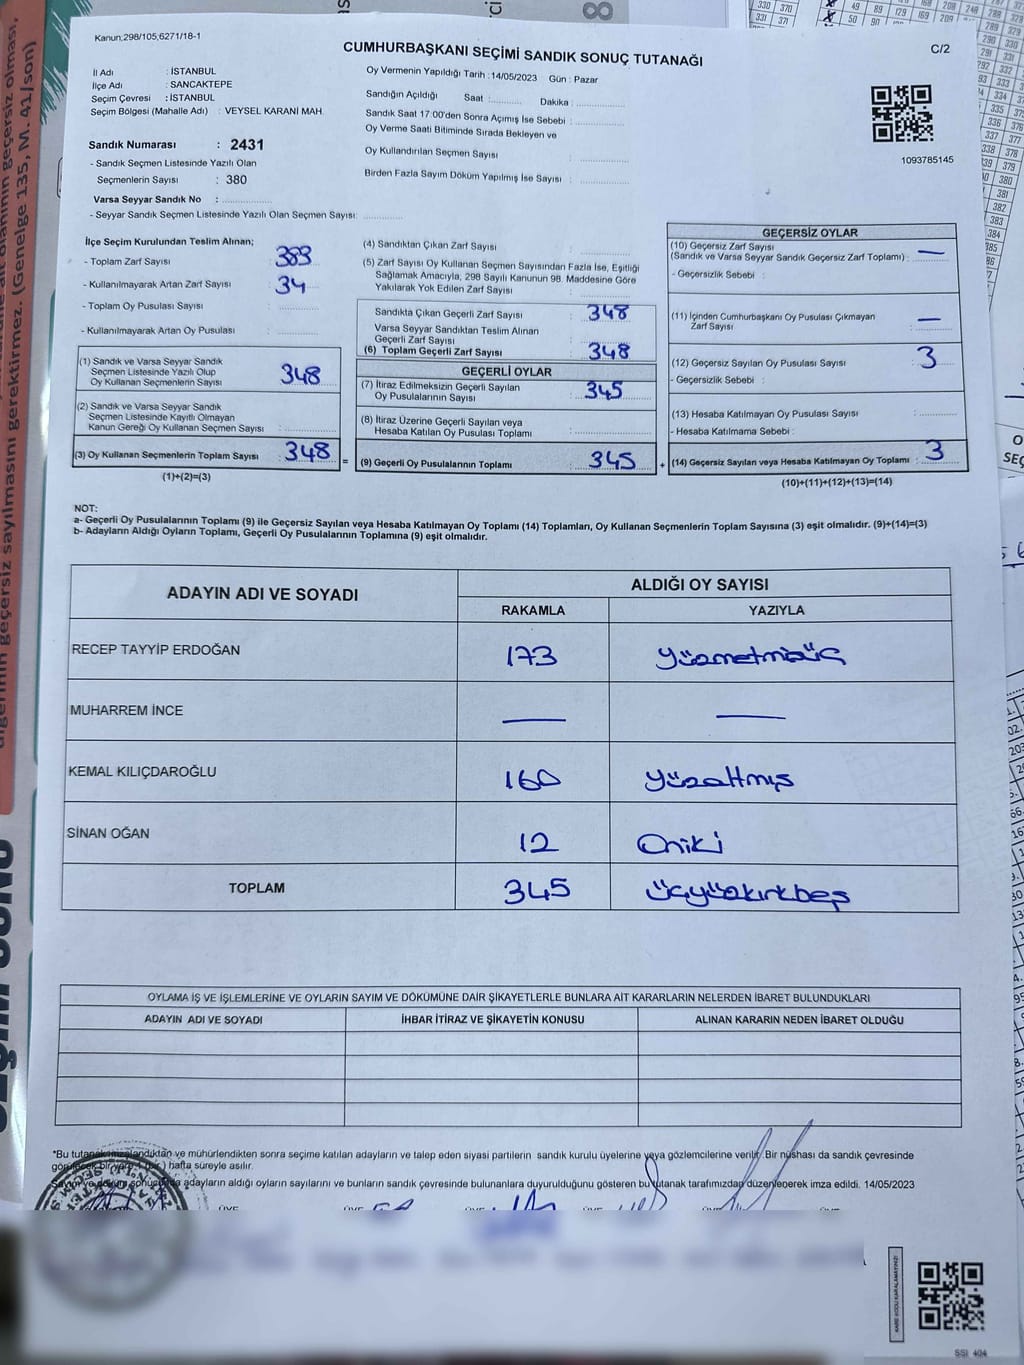 Kanun,298/105,6271/18-1
CUMHURBAŞKANI SEÇİMİ SANDIK SONUÇ TUTANAĞI
C/2
İl Adı : İSTANBUL
İlçe Adı : SANCAKTEPE
Seçim Çevresi : İSTANBUL
Seçim Bölgesi (Mahalle Adı) : VEYSEL KARANİ MAH.
Sandık Numarası : 2431
- Sandık Seçmen Listesinde Yazılı Olan
Seçmenlerin Sayısı : 380
Varsa Seyyar Sandık No :
- Seyyar Sandık Seçmen Listesinde Yazılı Olan Seçmen Sayısı:
Oy Vermenin Yapıldığı Tarih : 14/05/2023 Gün : Pazar
Sandığın Açıldığı Saat : Dakika :
Sandık Saat 17:00'den Sonra Açımış İse Sebebi :
Oy Verme Saati Bitiminde Sırada Bekleyen ve
Oy Kullandırılan Seçmen Sayısı :
Birden Fazla Sayım Döküm Yapılmış İse Sayısı :
1093785145
İlçe Seçim Kurulundan Teslim Alınan;
- Toplam Zarf Sayısı : 383
- Kullanılmayarak Artan Zarf Sayısı : 34
- Toplam Oy Pusulası Sayısı :
- Kullanılmayarak Artan Oy Pusulası :
(1) Sandık ve Varsa Seyyar Sandık
Seçmen Listesinde Yazılı Olup
Oy Kullanan Seçmenlerin Sayısı : 348
(2) Sandık ve Varsa Seyyar Sandık
Seçmen Listesinde Kayıtlı Olmayan
Kanun Gereği Oy Kullanan Seçmen Sayısı :
(3) Oy Kullanan Seçmenlerin Toplam Sayısı : 348 =
(1)+(2)=(3)
(4) Sandıktan Çıkan Zarf Sayısı :
(5) Zarf Sayısı Oy Kullanan Seçmen Sayısından Fazla İse, Eşitliği
Sağlamak Amacıyla, 298 Sayılı Kanunun 98. Maddesine Göre
Yakılarak Yok Edilen Zarf Sayısı :
Sandıkta Çıkan Geçerli Zarf Sayısı : 348
Varsa Seyyar Sandıktan Teslim Alınan
Geçerli Zarf Sayısı :
(6) Toplam Geçerli Zarf Sayısı : 348
GEÇERLİ OYLAR
(7) İtiraz Edilmeksizin Geçerli Sayılan
Oy Pusulalarının Sayısı : 345
(8) İtiraz Üzerine Geçerli Sayılan veya
Hesaba Katılan Oy Pusulası Toplamı :
(9) Geçerli Oy Pusulalarının Toplamı : 345 +
GEÇERSİZ OYLAR
(10) Geçersiz Zarf Sayısı
(Sandık ve Varsa Seyyar Sandık Geçersiz Zarf Toplamı) : —
- Geçersizlik Sebebi :
(11) İçinden Cumhurbaşkanı Oy Pusulası Çıkmayan
Zarf Sayısı : —
(12) Geçersiz Sayılan Oy Pusulası Sayısı : 3
- Geçersizlik Sebebi :
(13) Hesaba Katılmayan Oy Pusulası Sayısı :
- Hesaba Katılmama Sebebi :
(14) Geçersiz Sayılan veya Hesaba Katılmayan Oy Toplamı : 3
(10)+(11)+(12)+(13)=(14)
NOT:
a- Geçerli Oy Pusulalarının Toplamı (9) ile Geçersiz Sayılan veya Hesaba Katılmayan Oy Toplamı (14) Toplamları, Oy Kullanan Seçmenlerin Toplam Sayısına (3) eşit olmalıdır. (9)+(14)=(3)
b- Adayların Aldığı Oyların Toplamı, Geçerli Oy Pusulalarının Toplamına (9) eşit olmalıdır.
ADAYIN ADI VE SOYADI ALDIĞI OY SAYISI
RAKAMLA YAZIYLA
RECEP TAYYİP ERDOĞAN 173 yüzmetmişüç
MUHARREM İNCE — —
KEMAL KILIÇDAROĞLU 160 yüzaltmış
SİNAN OĞAN 12 Oniki
TOPLAM 345 üçyüzkırkbeş
OYLAMA İŞ VE İŞLEMLERİNE VE OYLARIN SAYIM VE DÖKÜMÜNE DAİR ŞİKAYETLERLE BUNLARA AİT KARARLARIN NELERDEN İBARET BULUNDUKLARI
ADAYIN ADI VE SOYADI İHBAR İTİRAZ VE ŞİKAYETİN KONUSU ALINAN KARARIN NEDEN İBARET OLDUĞU
*Bu tutanak imzalandıktan ve mühürlendikten sonra seçime katılan adayların ve talep eden siyasi partilerin sandık kurulu üyelerine veya gözlemcilerine verilir. Bir nüshası da sandık çevresinde
görülecek bir yere 1 (bir) hafta süreyle asılır.
Sayım ve döküm sonucunda adayların aldığı oyların sayılarını ve bunların sandık çevresinde bulunanlara duyurulduğunu gösteren bu tutanak tarafımızdan düzenlenerek imza edildi. 14/05/2023
SSİ 404